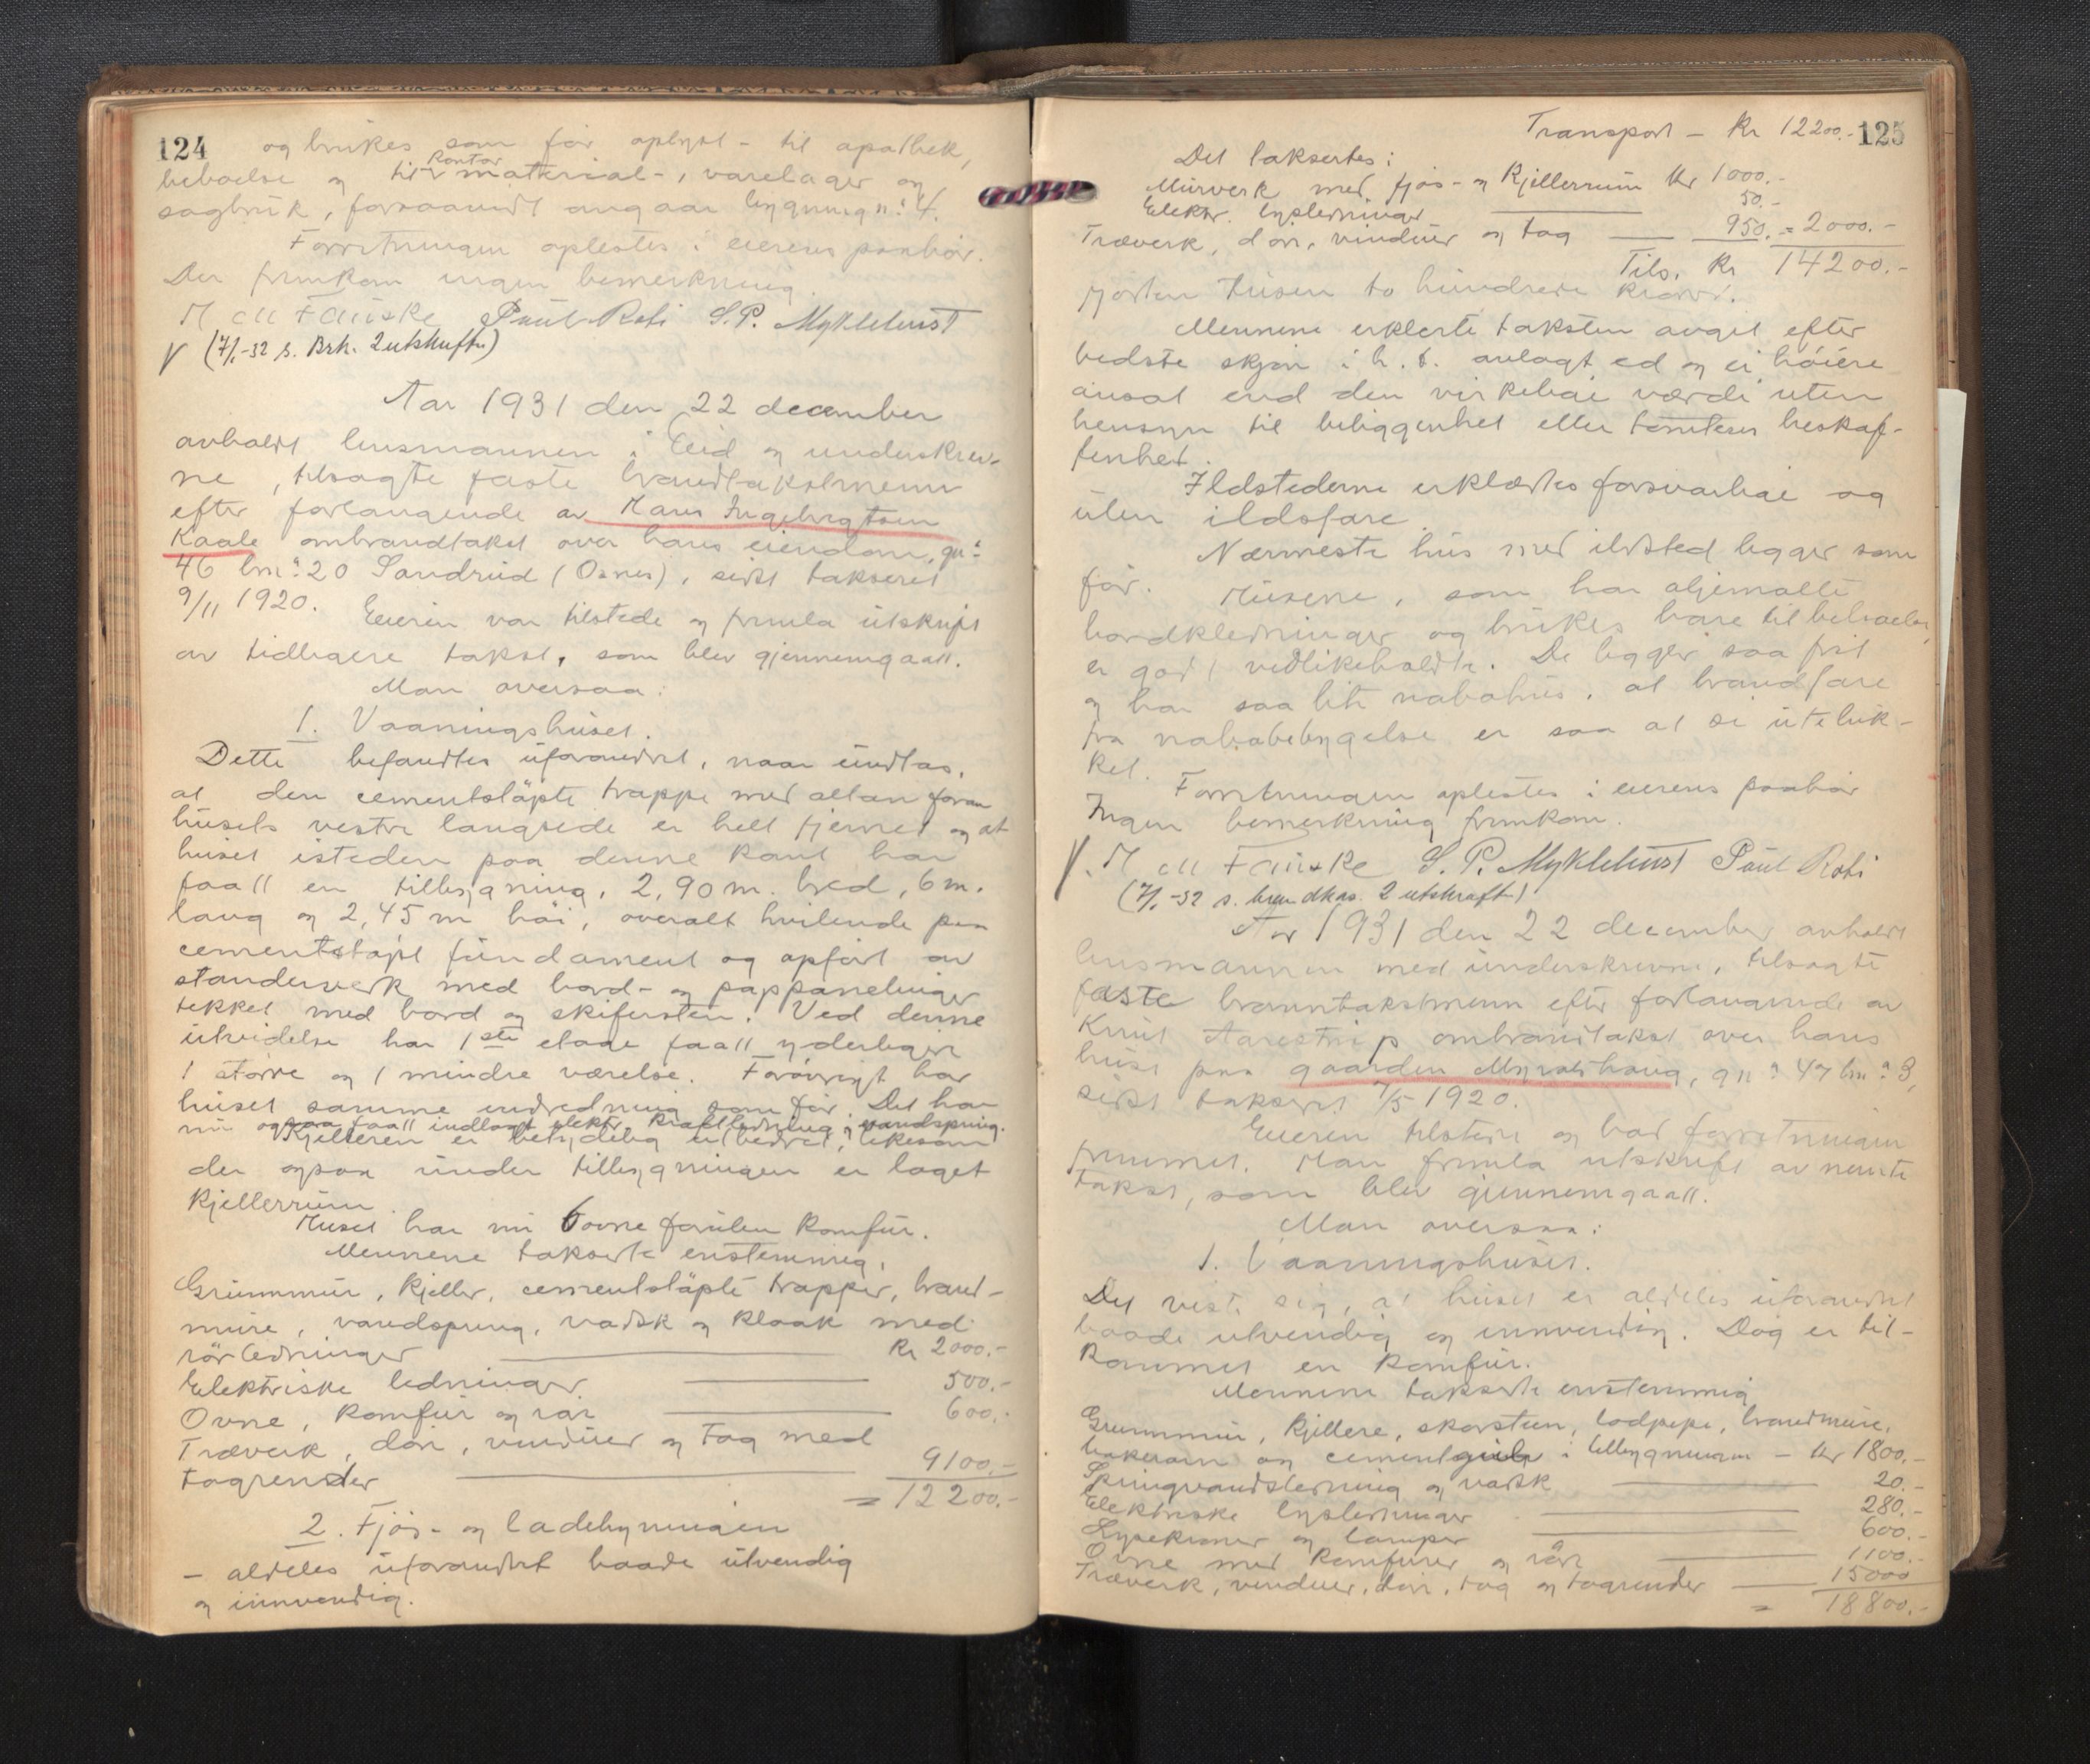 124
og brukes som før oplyst - til apothek,
beboelse og til kontor material-, varelager og
sagbruk, forsaavidt angaar bygning nr. 4.
Forretningen oplestes i eierens paahør.
Der fremkom ingen bemerkning.
H all Fauske Paul Roti S.P. Myklebust
V (7/1-32 s. Brk. 2 utskrifter)
Aar 1931 den 22 december
avholdt lensmannen i Eid og underskrev-
ne, tilsagte faste brandtakstmenn
efter forlangende av Hans Ingebrigtsen
Kaale ombrandtakst over hans eiendom, gnr.
46 bnr. 20 Sandrud (Osnes), sidst takseret
9/11 1920.
Eieren var tilstede og fremla utskrift
av tidligere takst, som blev gjennemgaatt.
Man oversaa:
1. Vaaningshuset.
Dette befandtes uforandret, naar undtas,
at den cementstøpte trappe med altan foran
husets vestre langside er helt fjernet og at
huset isteden paa denne kant har
faatt en tilbygning, 2,90 m. bred, 6 m.
lang og 2,45 m høi, overalt hvilende paa
cementstøpt fundament og opført av
standerverk med bord- og pappanelinger
tekket med bord og skifersten. Ved denne
utvidelse har 1ste etage faatt yderligere
1 større og 1 mindre værelse. Forøvrigt har
huset samme indredning som før. Det har
nu ogsaa faatt indlagt elektr. kraftledning og vandspring.
Kjelleren er betydelig utbedret, likesom
der ogsaa under tilbygningen er laget
kjellerrum.
Huset har nu 6 ovne foruten komfur.
Mennene takserte enstemmig,
Grunnmur, kjeller, cementstøpte trapper, brand-
mure, vandspring, vadsk og kloak med
rørledninger Kr 2000.-
Elektriske ledninger 500.-
Ovne, komfur og rør 600.-
Træverk, dør, vinduer og tag med
tagrender 9100.-
= 12200.-
2. Fjøs- og ladebyningen
- aldeles uforandret baade utvendig
og innvendig.
125
Transport - Kr 12200.-
Det taksertes:
Murverk med fjøs- og kjellerrum Kr 1000.-
Elektr. lysledninger 50.-
Træverk, dør, vinduer og tag 950. = 2000.-
Tils. Kr 14200.-
Fjorten tusen to hundrede kroner.
Mennene erklerte taksten avgit efter
bedste skjøn i h. t. avlagt ed og ei høiere
ansat end den virkelige værdi uten
hensyn til beliggenhet eller tomtens beskaf-
fenhet.
Ildstederne erklærtes forsvarlige og
uten ildsfare.
Nærmeste hus med ildsted ligger som
før. Husene, som har oljemalte
bordkledninger og brukes bare til beboelse,
er godt vedlikeholdte. De ligger saa frit
og har saa lite nabohus, at brandfare
fra nabobebygelse er saa at si uteluk-
ket.
Forretningen oplestes i eierens paahør
Ingen bemerkning fremkom.
V. H all Fauske S. P. Myklebust Paul Roti
(7/1-32 s. brandkas. 2 utskrafter)
Aar 1931 den 22 december avholdt
lensmannen med underskrevne, tilsagte
faste branntakstmenn efter forlangende av
Knut Aarestrup ombrandtakst over hans
huse paa gaarden Myrolshaug, gnr. 47 bnr. 3,
sidst takseret 7/5 1920.
Eieren tilstede og bad forretningen
fremmet. Man fremla utskrift av nevnte
takst, som blev gjennemgaatt.
Man oversaa:
1. Vaaningshuset.
Det viste sig, at huset er aldeles uforandret
baade utvendig og innvendig. Dog er til-
kommet en komfur.
Mennene takserte enstemmig
Grunnmur, kjellere, skorsteen, lodpipe, brandmure,
bakerovn og cementgulv i tilbygningen - Kr 1800.-
Springvandsledning og vadsk 20.-
Elektriske lysledninger 280.-
Lysekroner og lamper 600.-
Ovne med komfurer og rør 1100.-
Træverk, vinduer, dør, tag og tagrender 15000
= 18800.-